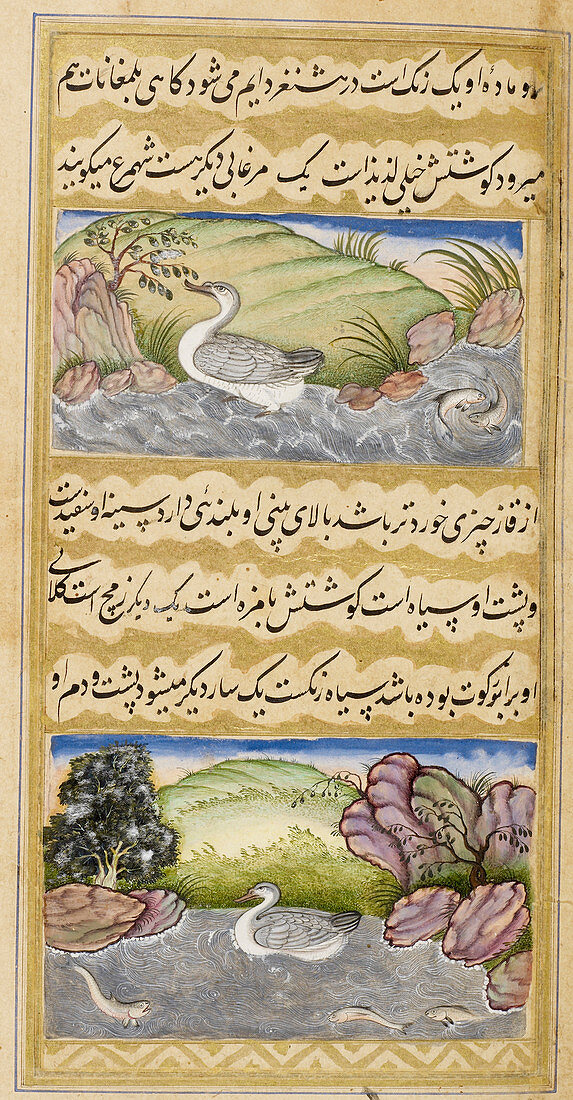 و ماده او یک رنگ است در هشنغر دایم می شود کاهی بلمغانات هم
میرود کوشتش خیلی لذیذ است یک مرغابی دیکر هست شهمرغ میکویند
از قاز چیزی خوردتر باشد بالای بینی او بلندئی دارد سینه او سفیدست
و پشت او سیاه است کوشتش بامزه است یک دیکر زمج است کلانی
او برابر بوده باشد سیاه رنکست یک سار دیکر میشود پشت و دم او